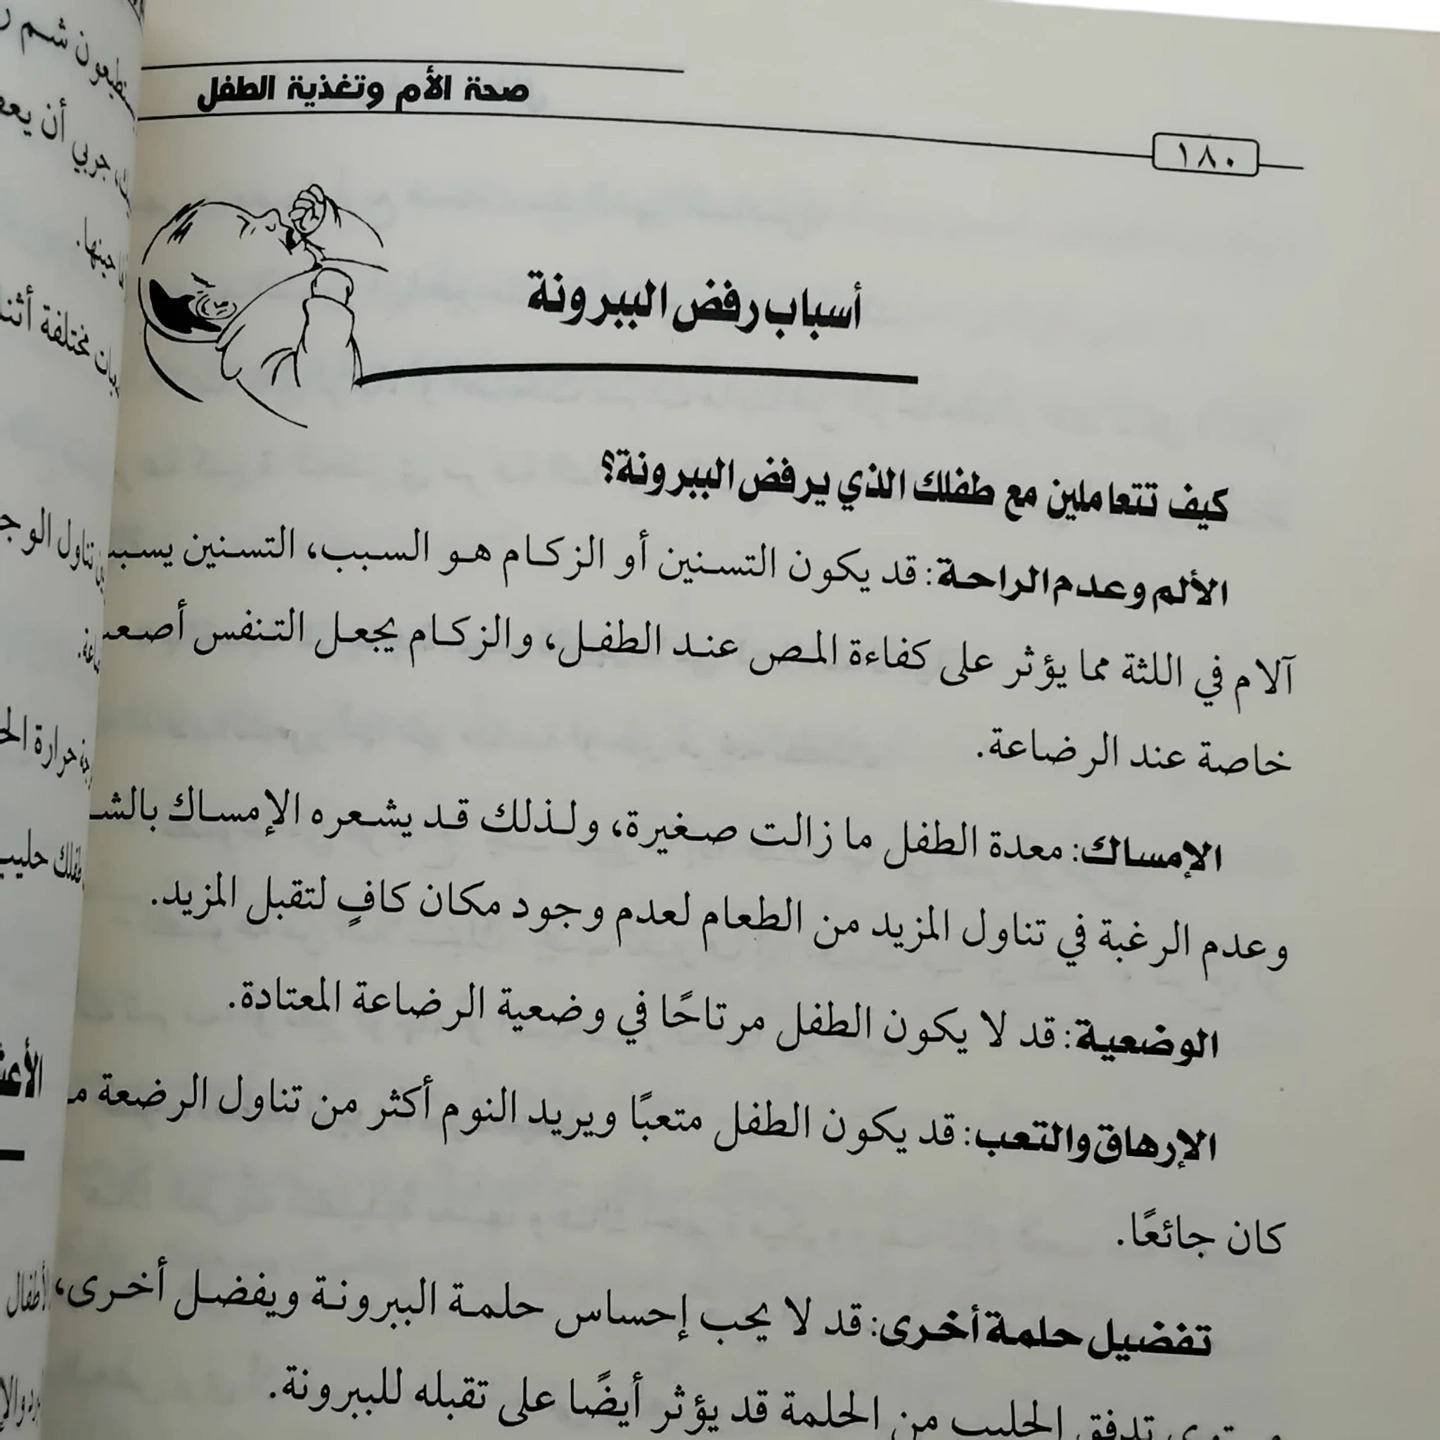 صحة الأم وتغذية الطفل
١٨٠
أسباب رفض الببرونة
كيف تتعاملين مع طفلك الذي يرفض الببرونة؟
الألم وعدم الراحة: قد يكون التسنين أو الزكام هو السبب، التسنين يسبب
آلام في اللثة مما يؤثر على كفاءة المص عند الطفل، والزكام يجعل التنفس أصعب
خاصة عند الرضاعة.
الإمساك: معدة الطفل ما زالت صغيرة، ولذلك قد يشعره الإمساك
وعدم الرغبة في تناول المزيد من الطعام لعدم وجود مكان كافٍ لتقبل المزيد.
الوضعية: قد لا يكون الطفل مرتاحًا في وضعية الرضاعة المعتادة.
الإرهاق والتعب: قد يكون الطفل متعبًا ويريد النوم أكثر من تناول الرضعة
كان جائعًا.
تفضيل حلمة أخرى: قد لا يحب إحساس حلمة الببرونة ويفضل أخرى،
تدفق الحليب من الحلمة قد يؤثر أيضًا على تقبله للببرونة.
جربي أن
جبنها.
مختلفة
تناول
حرارة
طفلك حليب
الأطفال